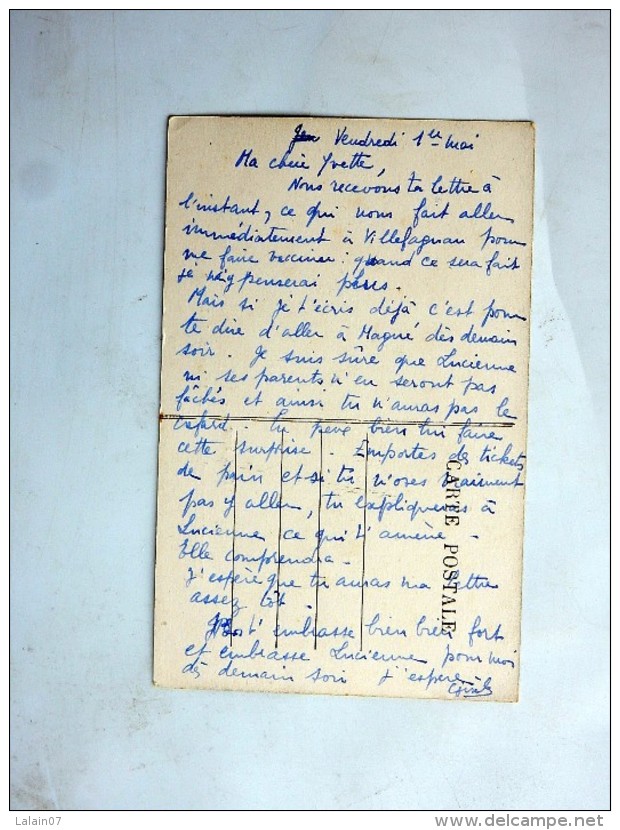 Vendredi 1er mai
Ma chère Yvette,
Nous recevons ta lettre à
l'instant, ce qui nous fait aller
immédiatement à Villefagnan pour
me faire vacciner : quand ce sera fait
je n'y penserai plus.
Mais si je t'écris déjà c'est pour
te dire d'aller à Magné dès demain
soir. Je suis sûre que Lucienne
ni ses parents n'en seront pas
fâchés et ainsi tu n'auras pas le
cafard. Tu peux bien lui faire
cette surprise. Emportes des tickets
de pain et si tu n'oses vraiment
pas y aller, tu expliqueras à
Lucienne ce qui t'amène.
Elle comprendra.
J'espère que tu auras ma lettre
assez tôt.
t'embrasse bien bien fort
et embrasse Lucienne pour moi
dès demain soir j'espère
CARTE POSTALE
Lalain07
www.delcampe.net